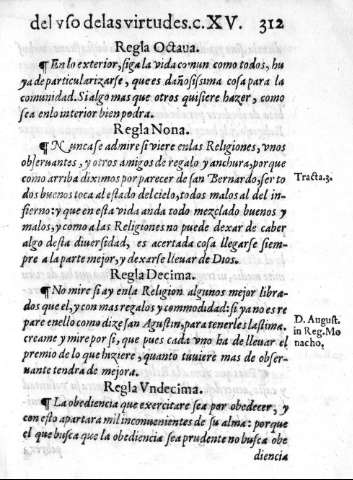 del vso de las virtudes. c. XV. 312
Regla Octaua.
¶ En lo exterior, siga la vida comun como todos, hu
ya de particularizarse, que es dañosissima cosa para la
comunidad. Si algo mas que otros quisiere hazer, como
sea en lo interior bien podra.
Regla Nona.
¶ Nunca se admire si viere en las Religiones, vnos
obseruantes, y otros amigos de regalo y anchura, porque
como arriba diximos por parecer de san Bernardo, ser to
dos buenos toca al estado del cielo, todos malos al del in-
fierno: y que en esta vida anda todo mezclado buenos y
malos, y como a las Religiones no puede dexar de caber
algo desta diuersidad, es acertada cosa llegarse siem-
pre a la parte mejor, y dexarse lleuar de Dios.
Tracta. 3.
Regla Decima.
¶ No mire si ay en la Religion algunos mejor libra-
dos que el, y con mas regalos y commodidad: si ya no es re
pare en ello como dize san Agustin, para tenerles lastima.
creame y mire por si, que pues cada vno ha de lleuar el
premio de lo que hiziere, quanto tuuiere mas de obser-
uante tendra de mejora.
D. August.
in Reg. Mo
nacho.
Regla Vndecima.
¶ La obediencia que exercitare sea por obedecer, y
con esto apartara mil inconuenientes de su alma: porque
el que busca que la obediencia sea prudente no busca obe
diencia